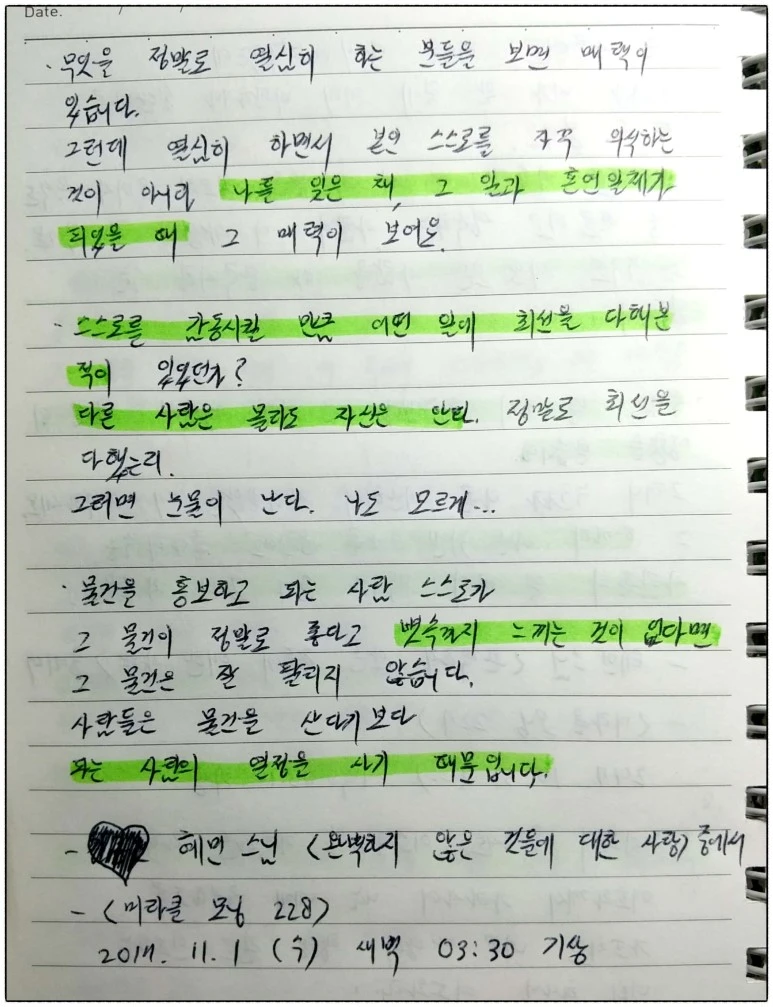 Date.
· 무엇을 정말로 열심히 하는 분들을 보면 매력이
있습니다.
그런데 열심히 하면서 본인 스스로를 자꾸 의식하는
것이 아니라, 나를 잊은 채, 그 일과 혼연일체가
되었을 때 그 매력이 보여요.
· 스스로를 감동시킬 만큼 어떤 일에 최선을 다해본
적이 있었던가?
다른 사람은 몰라도 자신은 안다. 정말로 최선을
다했는지.
그러면 눈물이 난다. 나도 모르게...
· 물건을 홍보하고 파는 사람 스스로가
그 물건이 정말로 좋다고 뼛속까지 느끼는 것이 없다면
그 물건은 잘 팔리지 않습니다.
사람들은 물건을 산다기보다
파는 사람의 열정을 사기 때문입니다.
- 혜민 스님 <완벽하지 않은 것들에 대한 사랑> 중에서
- <미라클 모닝 228>
2017. 11. 1 (수) 새벽 03:30 기상